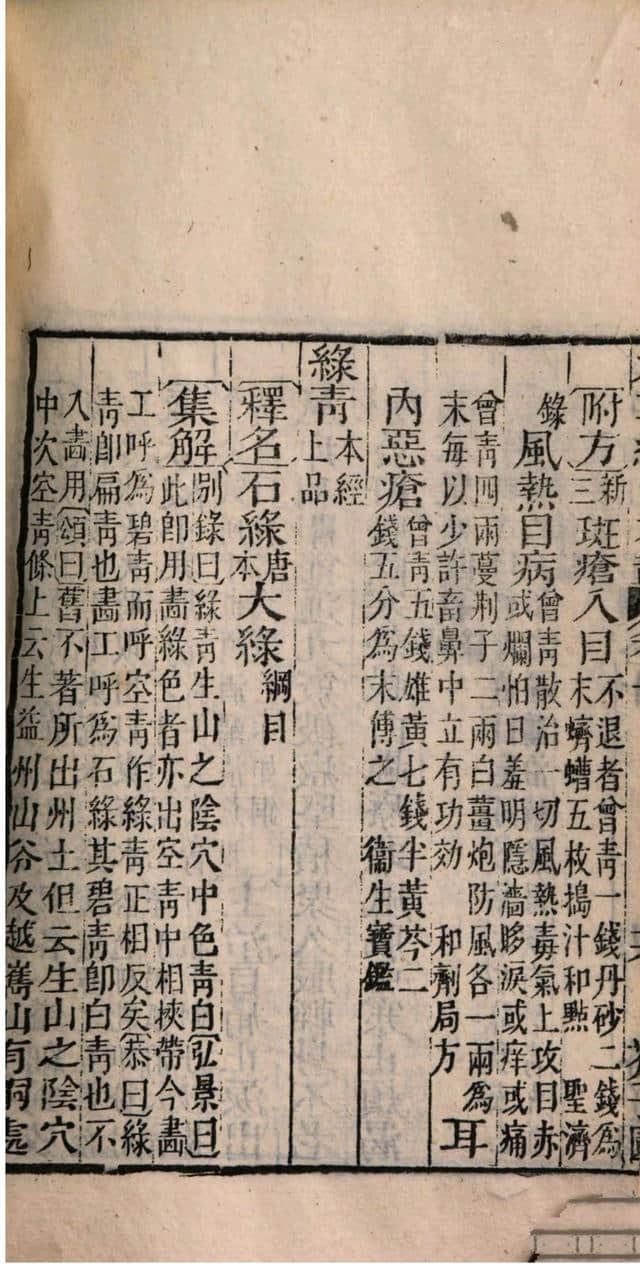 附方新三斑瘡入目不退者曾青一錢丹砂二錢爲末蠐螬五枚搗汁和點　聖濟
錄風熱目病曾青散治一切風熱毒氣上攻目赤或爛怕日羞明隱濇眵淚或痒或痛
曾青四兩蔓荆子二兩白薑炮防風各一兩爲末每以少許畜鼻中立有功効　和劑局方　耳
內惡瘡曾青五錢雄黃七錢半黃芩二錢五分爲末傅之　衞生寶鑑
綠青本經上品
釋名石綠唐本大綠綱目
集解別錄曰綠青生山之陰穴中色青白弘景曰此卽用畫綠色者亦出空青中相挾帶今畫
工呼爲碧青而呼空青作綠青正相反矣恭曰綠青卽扁青也畫工呼爲石綠其碧青卽白青也不
入畫用頌曰舊不著所出州土但云生山之陰穴中次空青條上云生益州山谷及越嶲山有銅處